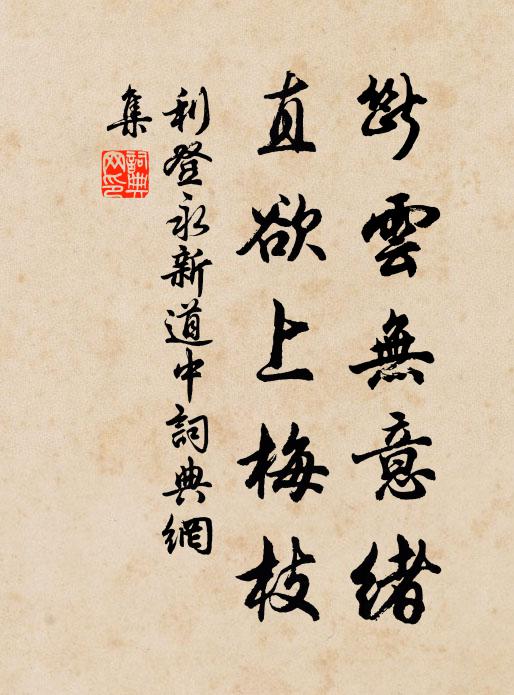 斷雲無意緒
直欲上梅枝
利登永新道中詞典網
集
詞典
网印